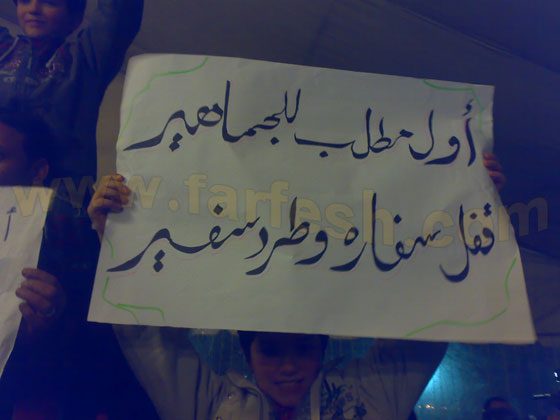 أول مطلب للجماهير
قفل سفاره وطرد سفير
www.farfesh.com
أ